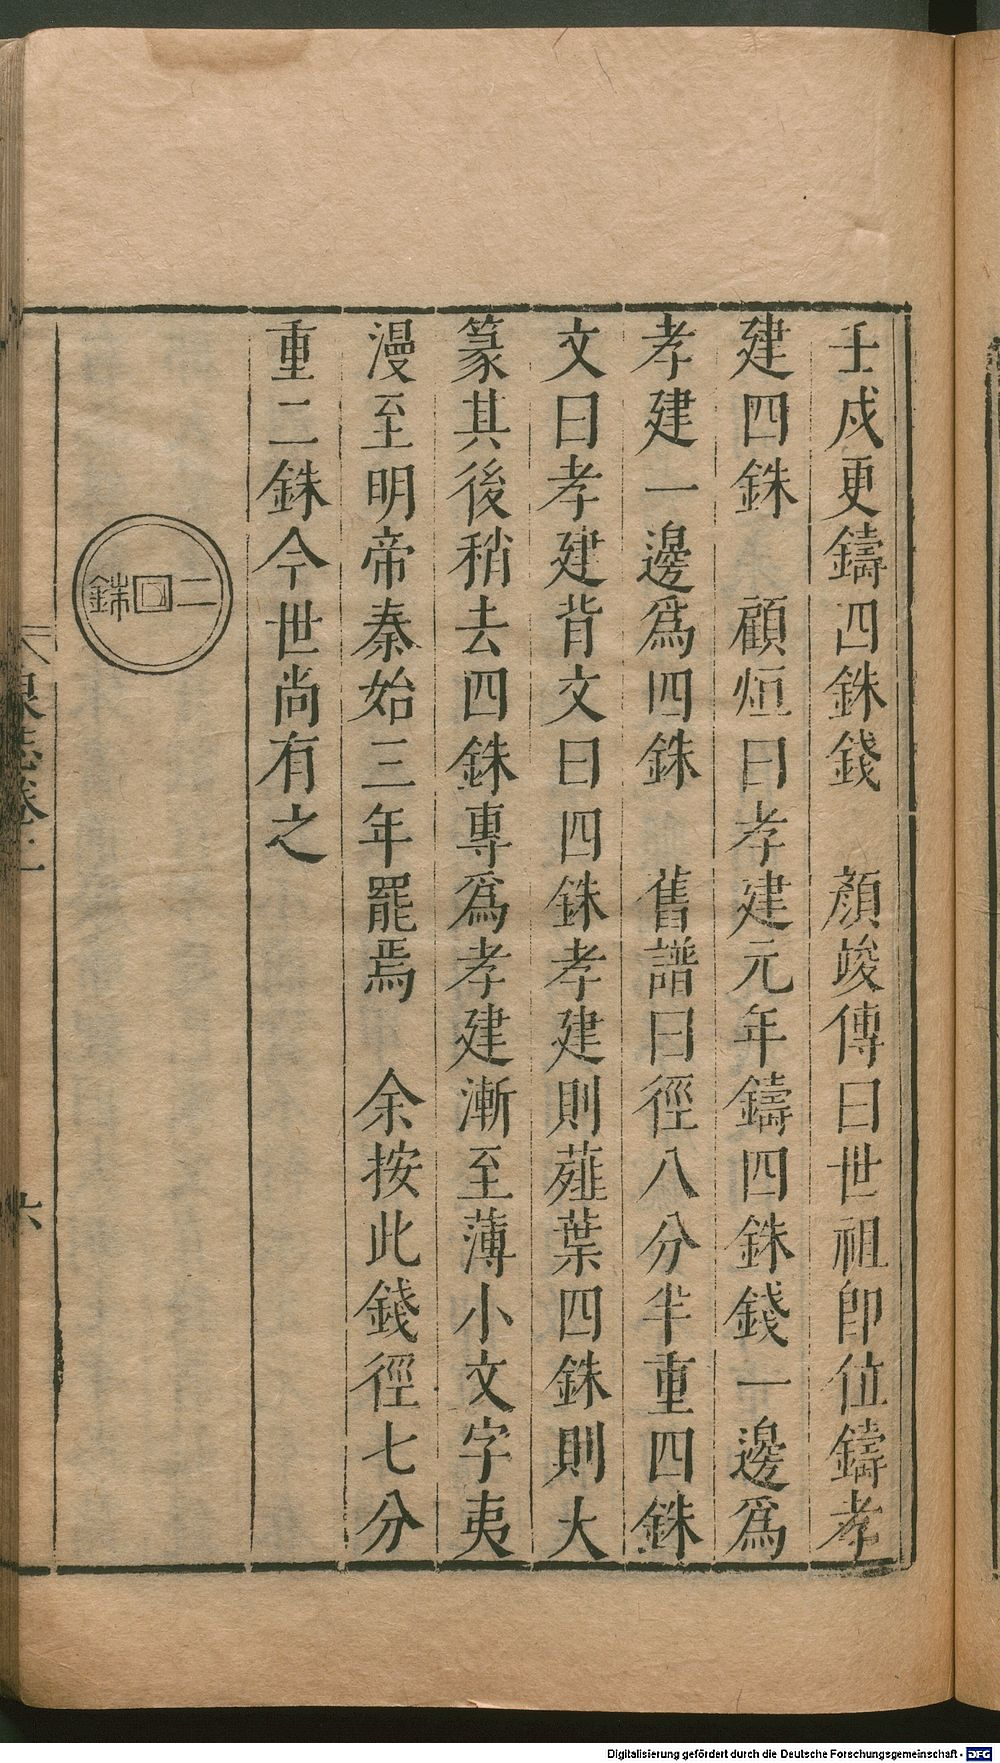 壬戍更鑄四銖錢　顏竣傳曰世祖卽位鑄孝
建四銖　顧烜曰孝建元年鑄四銖錢一邊爲
孝建一邊爲四銖　舊譜曰徑八分半重四銖
文曰孝建背文曰四銖孝建則薤葉四銖則大
篆其後稍去四銖專爲孝建漸至薄小文字夷
漫至明帝秦始三年罷焉　余按此錢徑七分
重二銖今世尚有之
二銖
泉志卷二
六
Digitalisierung gefördert durch die Deutsche Forschungsgemeinschaft - DFG